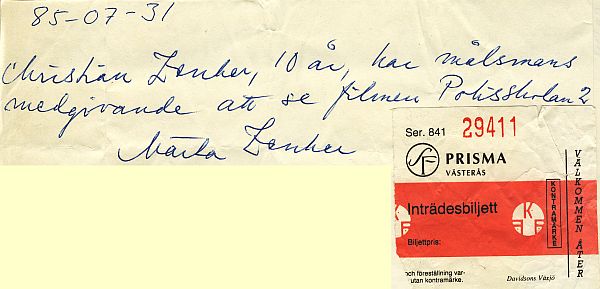 85-07-31
Christian Zenker, 10 år, har målsmans
medgivande att se filmen Polisskolan 2
Märta Zenker
Ser. 841 29411
SF PRISMA
VÄSTERÅS
Inträdesbiljett
K
Biljettpris:
och föreställning var-
utan kontramärke.
Davidsons Växjö
KONTRAMÄRKE
VÄLKOMMEN ÅTER